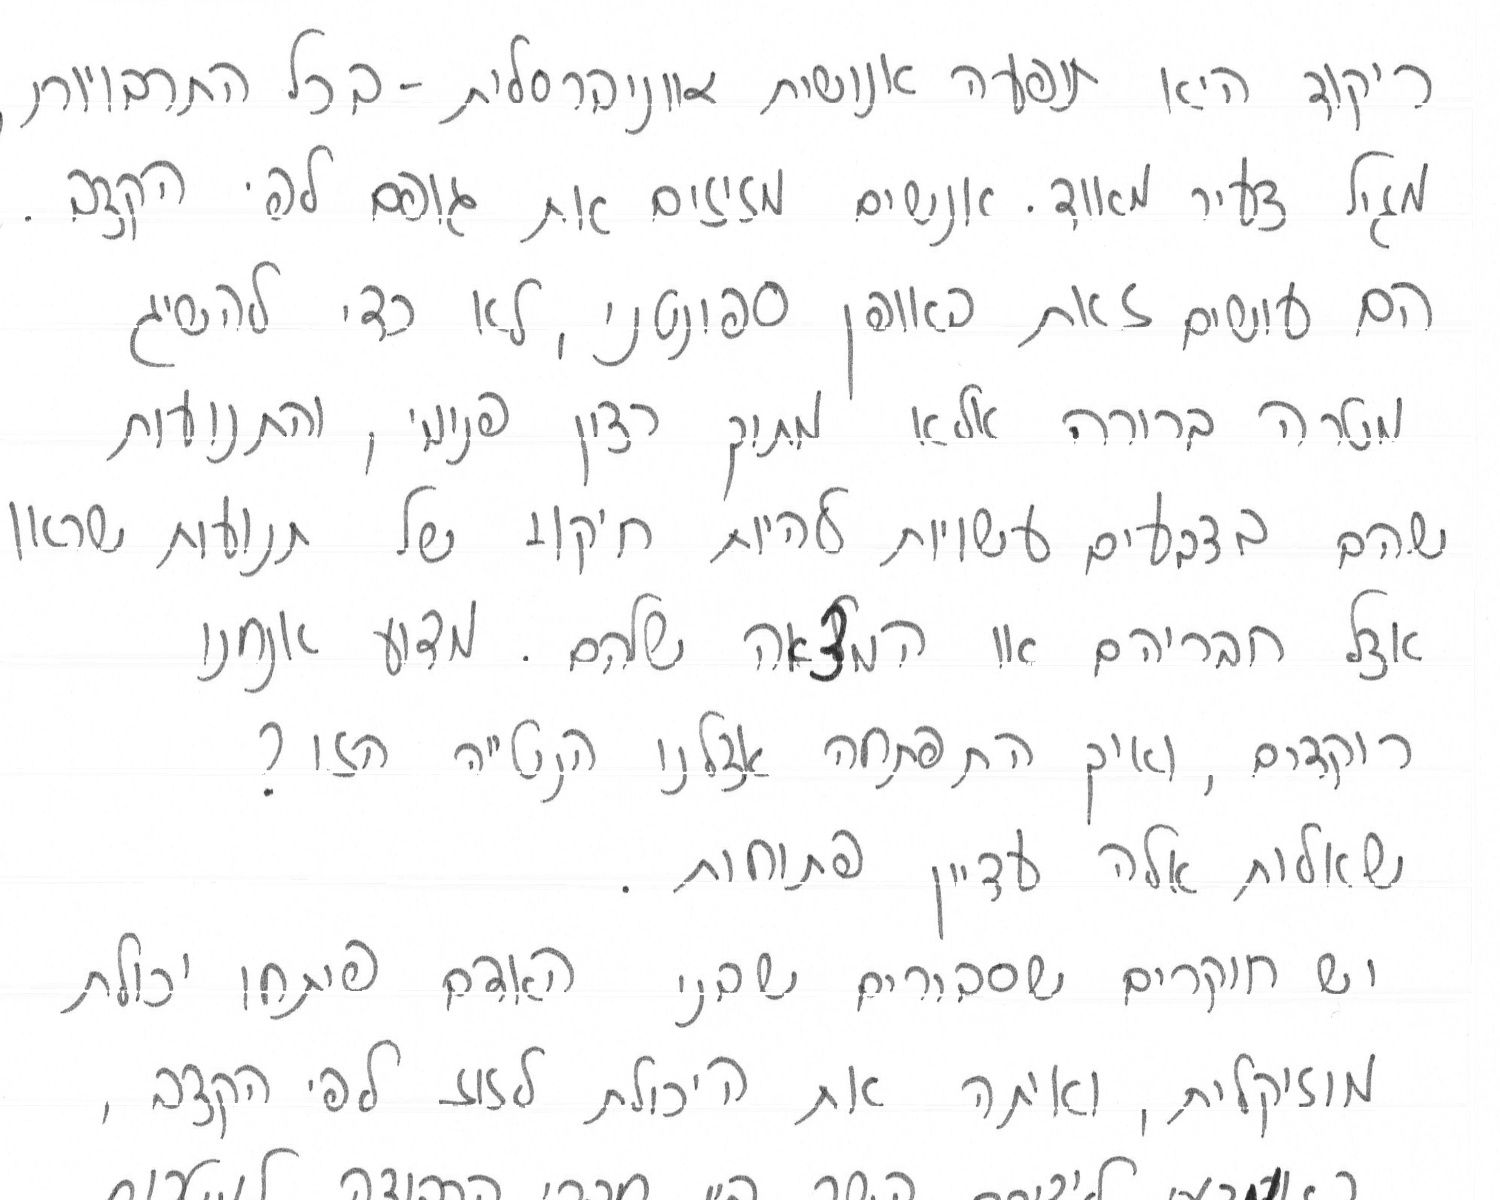 ריקוד היא תופעה אנושית אוניברסלית - בכל התרבויות,
מגיל צעיר מאוד. אנשים מזיזים את גופם לפי הקצב.
הם עושים זאת באופן ספונטני, לא כדי להשיג
מטרה ברורה אלא מתוך רצון פנימי, והתנועות
שהם מבצעים עשויות להיות חיקוי של תנועות שראו
אצל חבריהם או המצאה שלהם. מדוע אנחנו
רוקדים, ואיך התפתחה אצלנו הנטייה הזו?
שאלות אלה עדיין פתוחות.
יש חוקרים שסבורים שבני האדם פיתחו יכולת
מוזיקלית, ואיתה את היכולת לזוז לפי הקצב,